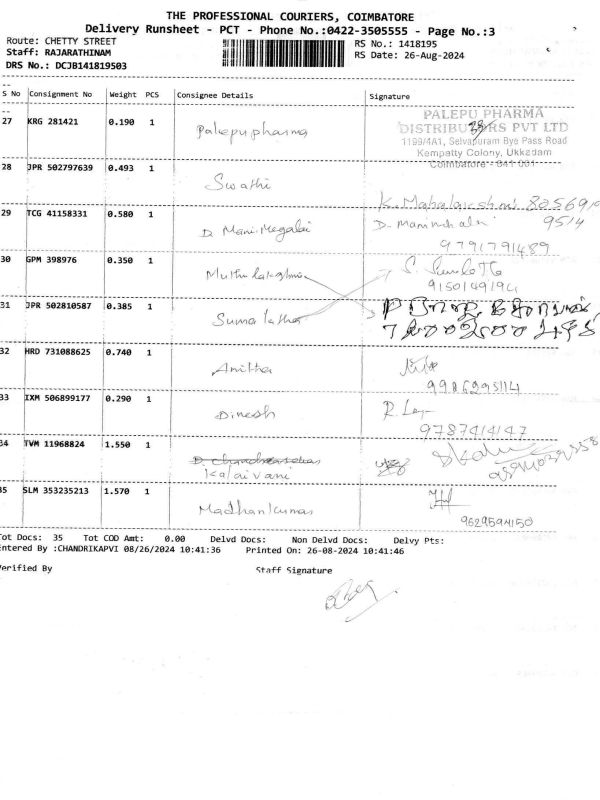 THE PROFESSIONAL COURIERS, COIMBATORE
Delivery Runsheet - PCT - Phone No.:0422-3505555 - Page No.:3
Route: CHETTY STREET
RS No.: 1418195
Staff: RAJARATHINAM
RS Date: 26-Aug-2024
DRS No.: DCJB141819503
S No Consignment No Weight PCS Consignee Details Signature
27 KRG 281421 0.190 1 Palepupharma
PALEPU PHARMA
DISTRIBUTORS PVT LTD
1199/4A1, Selvapuram Bye Pass Road
Kempatty Colony, Ukkadam
Coimbatore - 641 001
28 JPR 502797639 0.493 1 Swathi
29 TCG 41158331 0.580 1 D. Mani-Megalai
9514
9791791489
30 GPM 398976 0.350 1 Muthulakshmi
9150149194
31 JPR 502810587 0.385 1 Sumalatha
32 HRD 731088625 0.740 1 Amitha
9986295114
33 IXM 506899177 0.290 1 Dinesh
9787414147
34 TVM 11968824 1.550 1 Kalaivani
35 SLM 353235213 1.570 1 Madhankumar
9629594150
Tot Docs: 35 Tot COD Amt: 0.00 Delvd Docs: Non Delvd Docs: Delvy Pts:
Entered By :CHANDRIKAPVI 08/26/2024 10:41:36 Printed On: 26-08-2024 10:41:46
Verified By Staff Signature